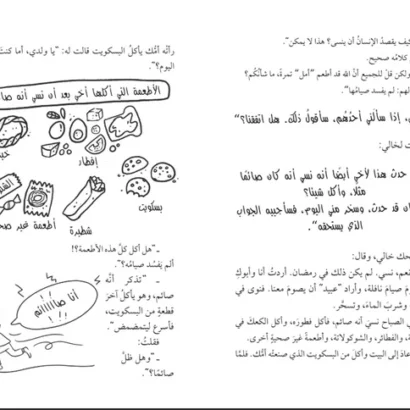 كيف يقصدُ الإنسانُ أن ينسى؟ هذا لا يمكن".
كلامُه صحيح.
ولكن قل للجميع أنَّ الله قد أطعم "أمل" تمرةً، ما شأنُكُم؟
لهم: لم يفسد صيامُها".
إذا سألَني أحدُهُم، سأقول ذلك. هل اتفقنا؟"
لخالي:
حدث هذا لأخي أيضاً أنه نسي أنه كان صائماً
مثلا، وأكل شيئاً؟
قد حدث، وسخر مني اليوم، فسأجيبه الجواب
الذي يستحقه".
خالي، وقال:
نعم، نسي. لم يكن ذلك في رمضان. أردتُ أنا وأبوكِ
صيامَ نافلة، وأراد "عبيد" أن يصومَ معنا. فنوى في
وشرب الماءَ، وتسحَّر.
الصباح نسيَ أنه صائم، فأكل فطورَه، وأكل الكعكَ في
والفطائر، والشوكولاتة، وأطعمةً غيرَ صحيةٍ أخرى.
عادَ إلى البيت وأكلَ من البسكويت الذي صنعتْه أمُّك. فلمَّا
رأتْه أمُّك يأكلُ البسكويت قالت له: "يا ولدي، أما كنتَ
اليوم؟".
الأطعمة التي أكلها أخي بعد أن نسي أنه
إفطار
بسكويت
شطيرة
أطعمة غير
ـ "هل أكل كلَّ هذه الأطعمة؟!
ألم يفسُد صيامُه؟".
ـ "تذكر أنَّه
صائم، وهو يأكلُ آخرَ
قطعةٍ من البسكويت،
فأسرع ليتمضمض".
فقلتُ:
ـ "وهل ظلَّ
صائمًا؟".
أنا صاااااائم